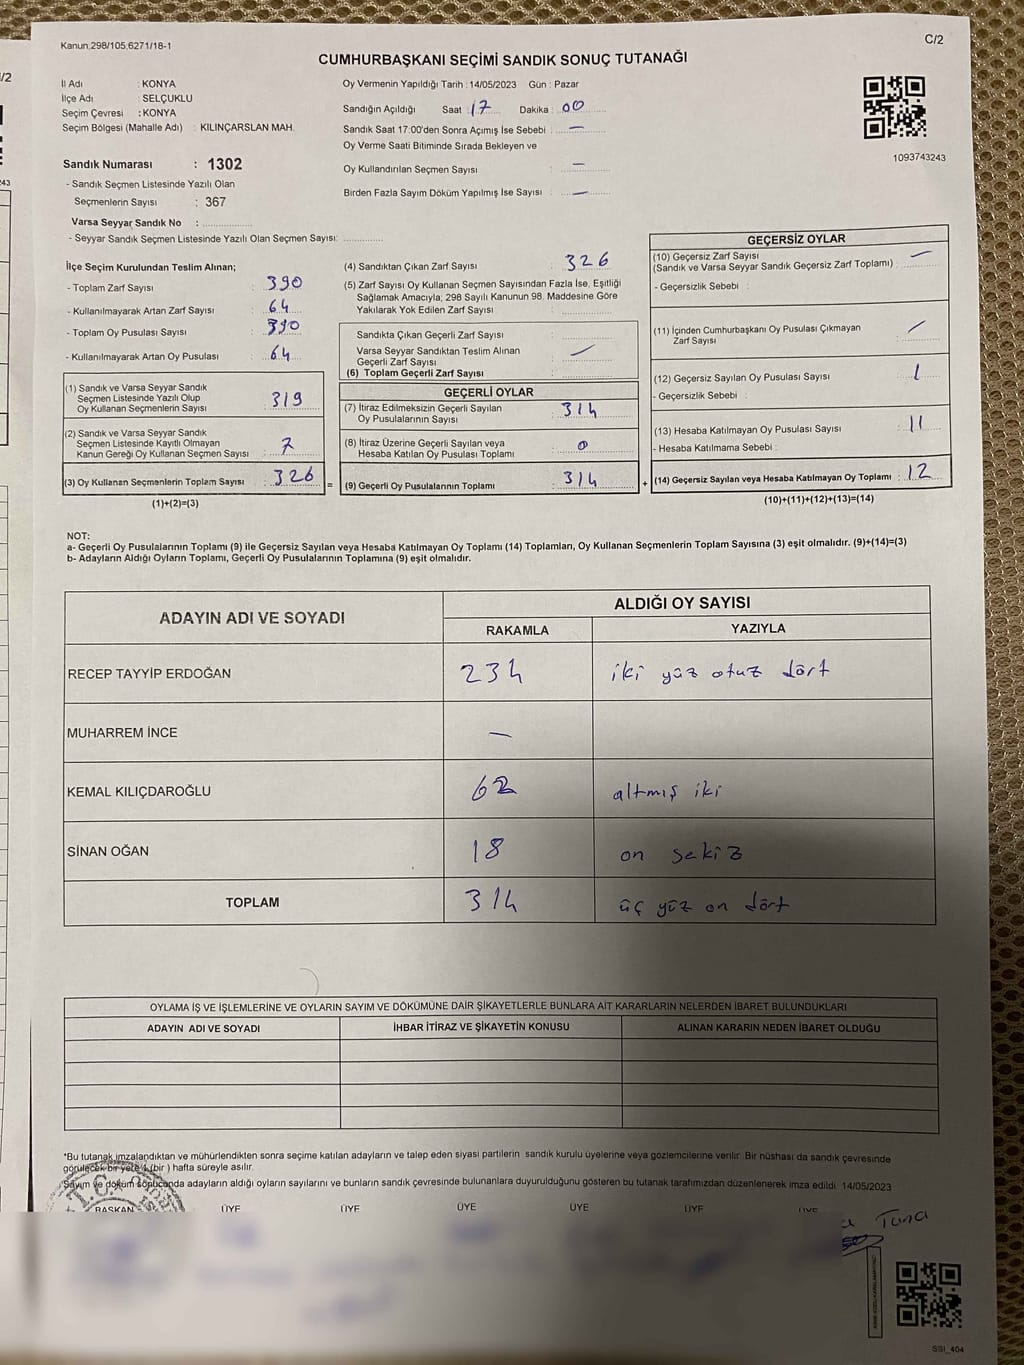 Kanun;298/105,6271/18-1
C/2
CUMHURBAŞKANI SEÇİMİ SANDIK SONUÇ TUTANAĞI
İl Adı : KONYA
İlçe Adı : SELÇUKLU
Seçim Çevresi : KONYA
Seçim Bölgesi (Mahalle Adı) : KILINÇARSLAN MAH.
Sandık Numarası : 1302
- Sandık Seçmen Listesinde Yazılı Olan
Seçmenlerin Sayısı : 367
Varsa Seyyar Sandık No :
- Seyyar Sandık Seçmen Listesinde Yazılı Olan Seçmen Sayısı:
Oy Vermenin Yapıldığı Tarih : 14/05/2023 Gün : Pazar
Sandığın Açıldığı Saat : 17 Dakika : 00
Sandık Saat 17:00'den Sonra Açımış İse Sebebi : —
Oy Verme Saati Bitiminde Sırada Bekleyen ve
Oy Kullandırılan Seçmen Sayısı : —
Birden Fazla Sayım Döküm Yapılmış İse Sayısı : —
1093743243
İlçe Seçim Kurulundan Teslim Alınan;
- Toplam Zarf Sayısı : 390
- Kullanılmayarak Artan Zarf Sayısı : 64
- Toplam Oy Pusulası Sayısı : 390
- Kullanılmayarak Artan Oy Pusulası : 64
(1) Sandık ve Varsa Seyyar Sandık
Seçmen Listesinde Yazılı Olup
Oy Kullanan Seçmenlerin Sayısı : 319
(2) Sandık ve Varsa Seyyar Sandık
Seçmen Listesinde Kayıtlı Olmayan
Kanun Gereği Oy Kullanan Seçmen Sayısı : 7
(3) Oy Kullanan Seçmenlerin Toplam Sayısı : 326 =
(1)+(2)=(3)
(4) Sandıktan Çıkan Zarf Sayısı : 326
(5) Zarf Sayısı Oy Kullanan Seçmen Sayısından Fazla İse, Eşitliği
Sağlamak Amacıyla; 298 Sayılı Kanunun 98. Maddesine Göre
Yakılarak Yok Edilen Zarf Sayısı :
Sandıkta Çıkan Geçerli Zarf Sayısı :
Varsa Seyyar Sandıktan Teslim Alınan
Geçerli Zarf Sayısı : —
(6) Toplam Geçerli Zarf Sayısı :
GEÇERLİ OYLAR
(7) İtiraz Edilmeksizin Geçerli Sayılan
Oy Pusulalarının Sayısı : 314
(8) İtiraz Üzerine Geçerli Sayılan veya
Hesaba Katılan Oy Pusulası Toplamı : 0
(9) Geçerli Oy Pusulalarının Toplamı : 314 +
GEÇERSİZ OYLAR
(10) Geçersiz Zarf Sayısı
(Sandık ve Varsa Seyyar Sandık Geçersiz Zarf Toplamı) : —
- Geçersizlik Sebebi :
(11) İçinden Cumhurbaşkanı Oy Pusulası Çıkmayan
Zarf Sayısı : —
(12) Geçersiz Sayılan Oy Pusulası Sayısı : 1
- Geçersizlik Sebebi :
(13) Hesaba Katılmayan Oy Pusulası Sayısı : 11
- Hesaba Katılmama Sebebi :
(14) Geçersiz Sayılan veya Hesaba Katılmayan Oy Toplamı : 12
(10)+(11)+(12)+(13)=(14)
NOT:
a- Geçerli Oy Pusulalarının Toplamı (9) ile Geçersiz Sayılan veya Hesaba Katılmayan Oy Toplamı (14) Toplamları, Oy Kullanan Seçmenlerin Toplam Sayısına (3) eşit olmalıdır. (9)+(14)=(3)
b- Adayların Aldığı Oyların Toplamı, Geçerli Oy Pusulalarının Toplamına (9) eşit olmalıdır.
ADAYIN ADI VE SOYADI ALDIĞI OY SAYISI
RAKAMLA YAZIYLA
RECEP TAYYİP ERDOĞAN 234 iki yüz otuz dört
MUHARREM İNCE —
KEMAL KILIÇDAROĞLU 62 altmış iki
SİNAN OĞAN 18 on sekiz
TOPLAM 314 üç yüz on dört
OYLAMA İŞ VE İŞLEMLERİNE VE OYLARIN SAYIM VE DÖKÜMÜNE DAİR ŞİKAYETLERLE BUNLARA AİT KARARLARIN NELERDEN İBARET BULUNDUKLARI
ADAYIN ADI VE SOYADI İHBAR İTİRAZ VE ŞİKAYETİN KONUSU ALINAN KARARIN NEDEN İBARET OLDUĞU
*Bu tutanak imzalandıktan ve mühürlendikten sonra seçime katılan adayların ve talep eden siyasi partilerin sandık kurulu üyelerine veya gözlemcilerine verilir. Bir nüshası da sandık çevresinde
görülecek bir yere 1 (bir ) hafta süreyle asılır.
Sayım ve döküm sonucunda adayların aldığı oyların sayılarını ve bunların sandık çevresinde bulunanlara duyurulduğunu gösteren bu tutanak tarafımızdan düzenlenerek imza edildi. 14/05/2023
T.C.
BAŞKAN ÜYE ÜYE ÜYE ÜYE ÜYE ÜYE
SSI_404